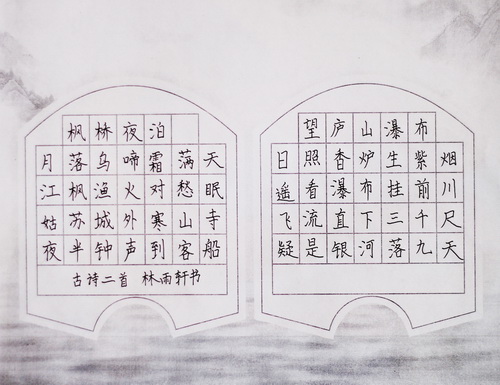 枫桥夜泊
月落乌啼霜满天
江枫渔火对愁眠
姑苏城外寒山寺
夜半钟声到客船
古诗二首 林雨轩书
望庐山瀑布
日照香炉生紫烟
遥看瀑布挂前川
飞流直下三千尺
疑是银河落九天